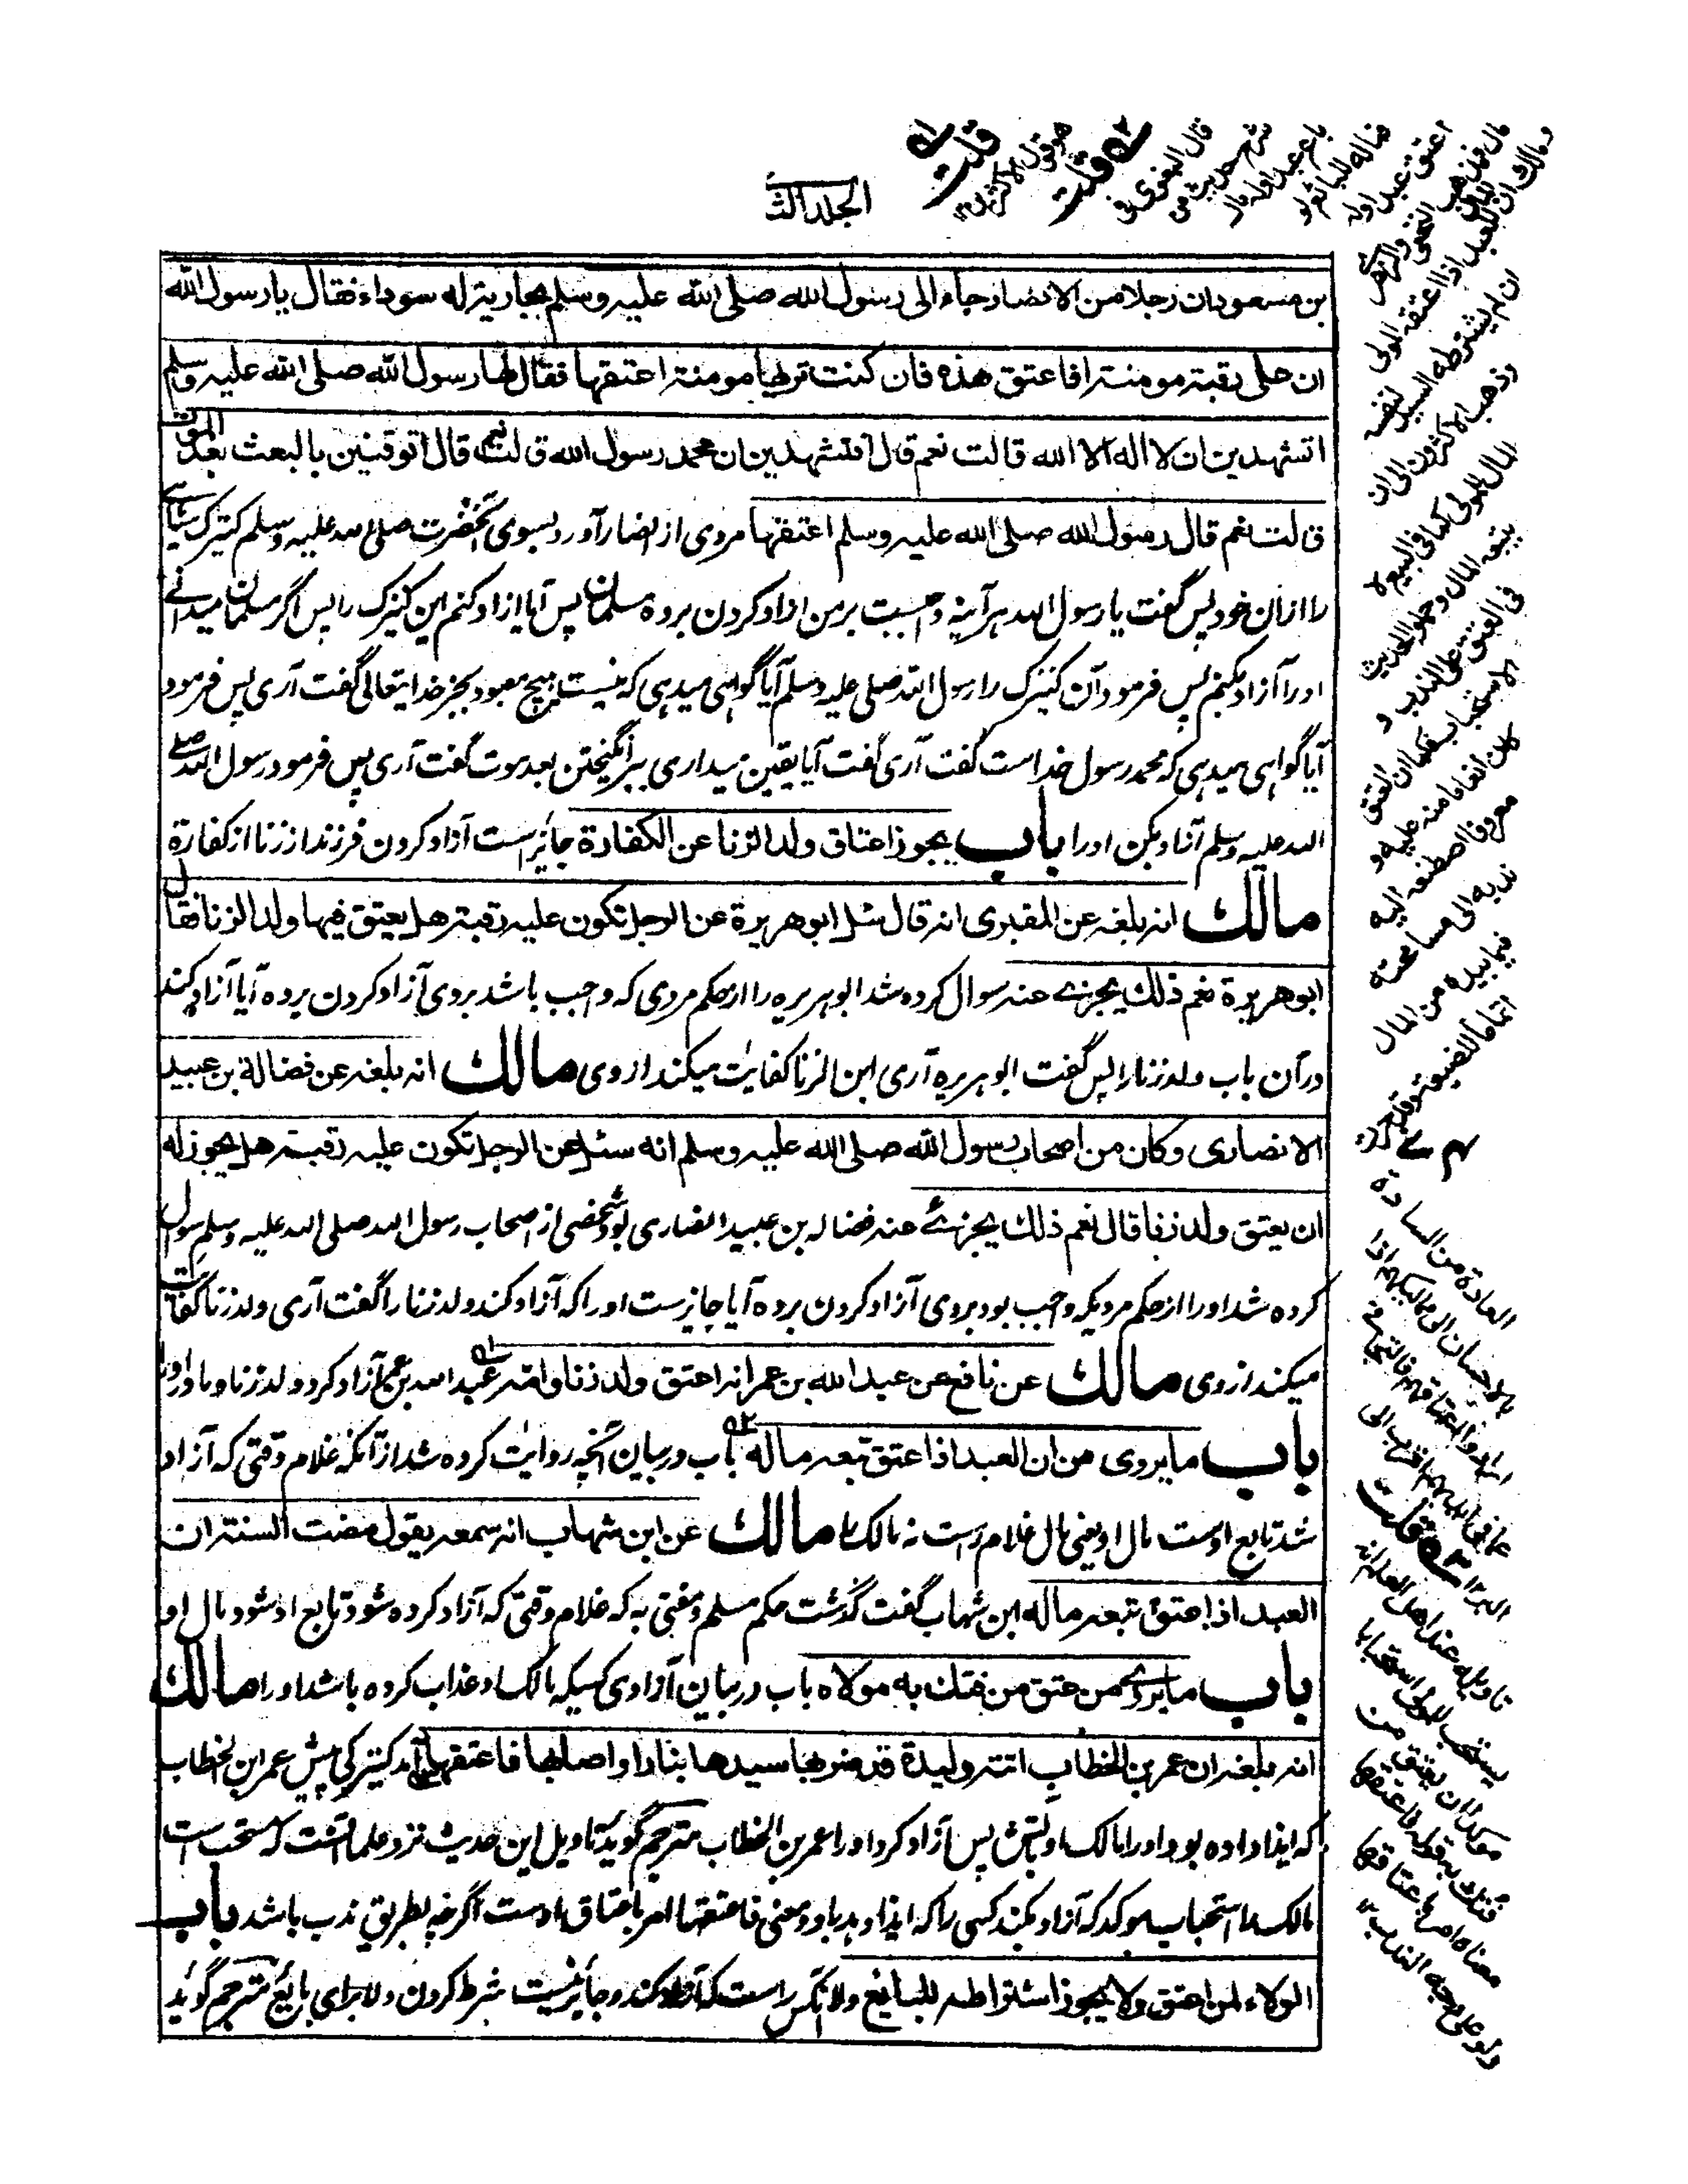 الجلد الثانے
بن مسعود ان رجلا من الانصار جاء الى رسول الله صلى الله عليه وسلم بجارية له سوداء فقال يا رسول الله
ان على رقبة مومنة افاعتق هذه فان كنت تراها مومنة اعتقها فقال لها رسول الله صلى الله عليه وسلم
اتشهدين ان لا اله الا الله قالت نعم قال افتشهدين ان محمد رسول الله قالت نعم قال اتوقنين بالبعث بعد الموت
قالت نعم قال رسول الله صلى الله عليه وسلم اعتقها مردی از انصار آورد بسوی آنحضرت صلی الله علیه وسلم کنیزک سیاہے
را ازان خود پس گفت یا رسول الله هرآینه واجبست بر من ازاد کردن برده مسلمان پس آیا ازاد کنم این کنیزک را پس اگر مسلمان میدانے
اورا آزاد میکنم پس فرمود آن کنیزک را رسول الله صلی علیه وسلم آیا گواهی میدهی که نیست هیچ معبود بجز خدایتعالی گفت آری پس فرمود
آیا گواهی میدهی که محمد رسول خداست گفت آری گفت آیا یقین میداری ببرانگیختن بعد موت گفت آری پس فرمود رسول الله صلے
الله علیه وسلم آزاد بکن اورا باب يجوز اعتاق ولد الزنا عن الكفارة جائز است آزاد کردن فرزند از زنا از کفارة
مالك انه بلغه عن المقبرى انه قال سئل ابوهريرة عن الرجل تكون عليه رقبة هل يعتق فيها ولد الزنا فقال
ابوهريرة نعم ذلك يجزئ عنه سوال کرده شد ابو هریره را از حکم مردی که واجب باشد بروی آزاد کردن برده آیا آزاد کند
در آن باب ولد زنا را پس گفت ابو هریره آری ابن الزنا کفایت میکند از وی مالك انه بلغه عن فضالة بن عبيد
الانصارى وكان من اصحاب رسول الله صلى الله عليه وسلم انه سئل عن الرجل تكون عليه رقبة هل يجوز له
ان يعتق ولد زنا قال نعم ذلك يجزئ عنه فضاله بن عبید انصاری بود شخصی از اصحاب رسول الله صلی الله علیه وسلم سوال
کرده شد اورا از حکم مردیکه واجب بود بروی آزاد کردن برده آیا جایزست اورا که آزاد کند ولد زنا را گفت آری ولد زنا کفایت
میکند از وی مالك عن نافع عن عبد الله بن عمر انه اعتق ولد زنا وامه عبد الله بن عمر آزاد کرد ولد زنا و مادر اورا
باب ما يروى من ان العبد اذا عتق تبعه ماله باب در بیان آنچه روایت کرده شد از آنکه غلام وقتی که آزاد
شد تابع اوست مال او یعنی مال غلام راست نه مالک را مالك عن ابن شهاب انه سمعه يقول مضت السنة ان
العبد اذا عتق تبعه ماله ابن شهاب گفت گذشت حکم مسلم ومفتی به که غلام وقتی که آزاد کرده شود تابع او شود مال او
باب ما يروى من عتق من فتك به مولاه باب در بیان آزادی کسیکه مالک او عذاب کرده باشد اورا مالك
انه بلغه ان عمر بن الخطاب اتته وليدة قد ضربها سيدها بنار او اصابها فاعتقها آمد کنیزکی پیش عمر ابن الخطاب
که ایذا داده بود اورا مالک او بآتش پس آزاد کرد اورا عمر بن الخطاب مترجم گوید تاویل این حدیث نزد علما آنست که مستحب است
مالک را استحباب موکد که آزاد بکند کسی را که ایذا دهد باو ومعنی فاعتقها امر باعتاق اوست اگرچه بطریق ندب باشد باب
الولاء لمن اعتق ولا يجوز اشتراطه للبائع ولا آنکس راست که آزاد کند وجائز نیست شرط کردن ولا برای بائع مترجم گوید
له قلت
هو قول الاكثرين ۱۲
قلت
قال البغوى فى
شرح حديث من
باع عبدا وله مال
فماله للبائع لو
اعتق عبدا وله
مال فمذهب النخعى والزهرى
ومالك ان للعبد اذا اعتقه المولى
ان لم يشترطه السيد لنفسه
وذهب الاكثرون الى ان
المال للمولى كما فى البيع لا
يتبعه المال وحملوا الحديث
فى العتق على الندب و
الاستحباب فكما ان العتق
كان انعاما منه عليه و
معروفا اصطنعه اليه
ندبه الى مسامحته
فيما بيده من المال
اتماما للصنيعة وقد جرت
العادة من السادة
بالاحسان الى مماليكهم اذا
ارادوا اعتاقهم فالتجافى
عما فى ايديهم اقرب الى
البر ۱۲ قلت
تاويله عند اهل العلم انه
يستحب للمولى استحبابا
موكدا ان يعتق من
فتك به قوله فاعتقها
معناه امر باعتاقها
ولو على وجه الندب ۱۲